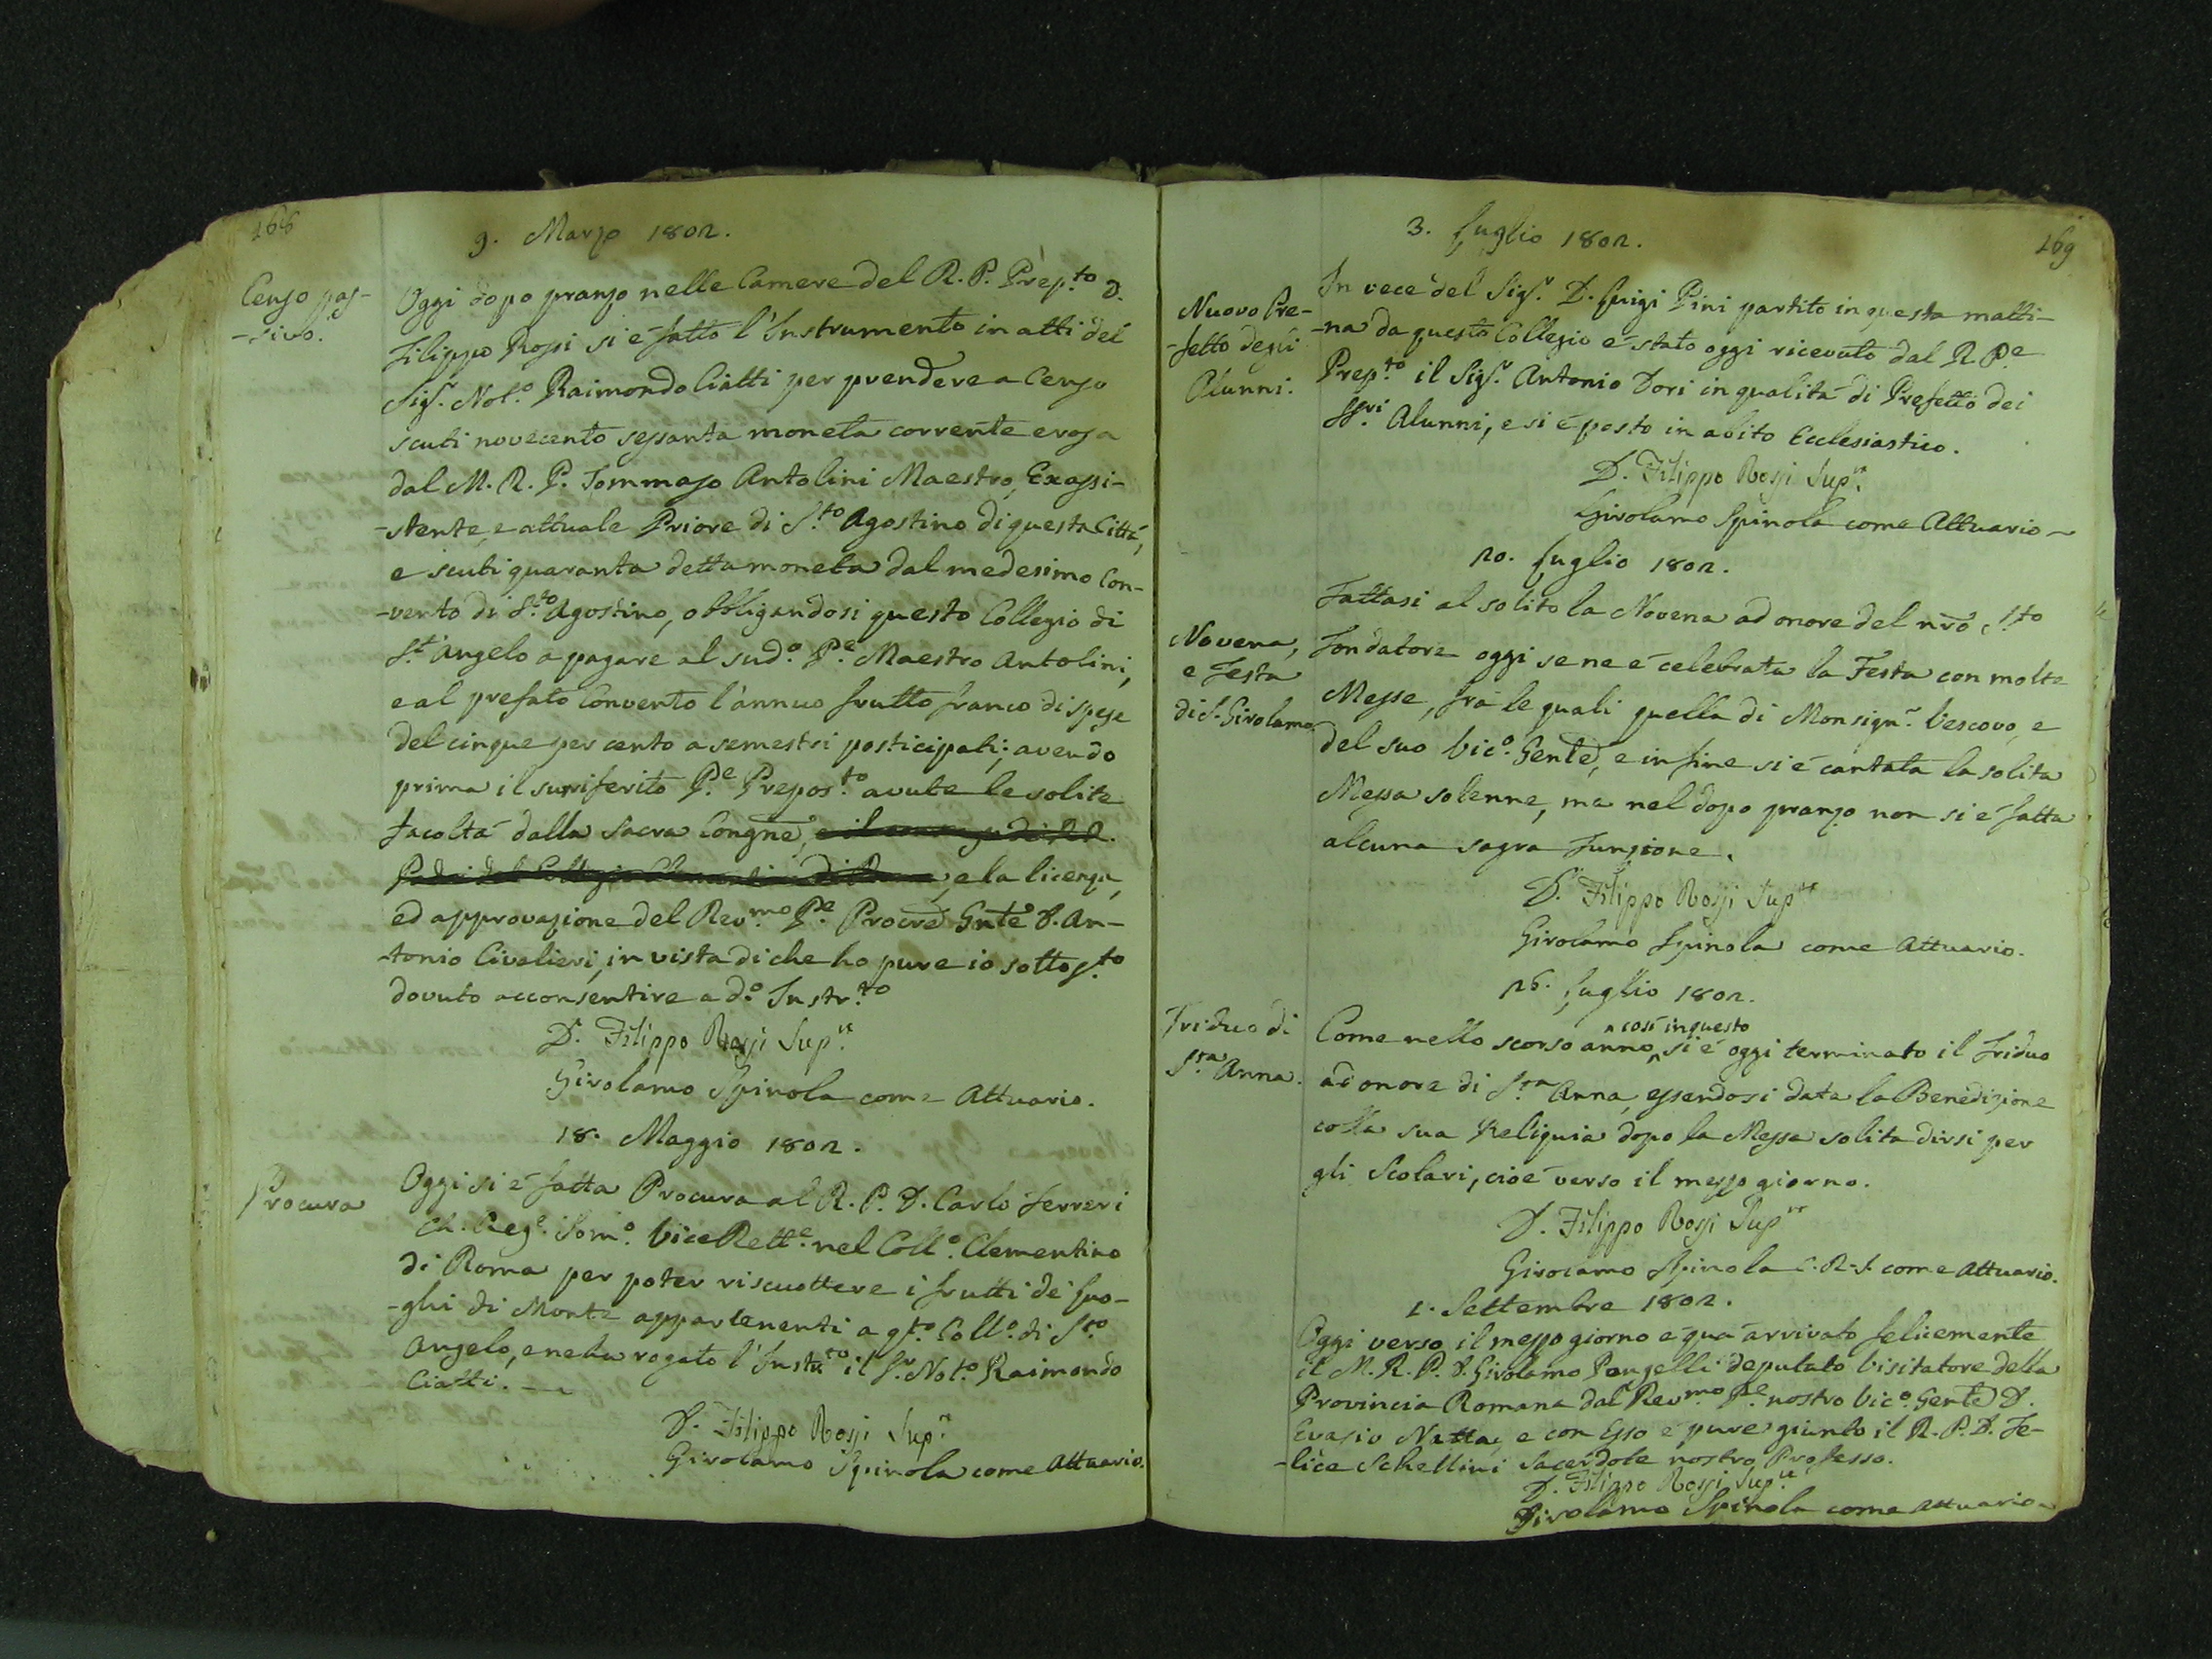 168
9. Marzo 1802.
Censo pas-
-sivo.
Oggi dopo pranzo nelle Camere del R. P. Prep.to D.
Filippo Rossi si è fatto l'Instrumento in atti del
Sig.r Not.o Raimondo Ciatti per prendere a Censo
scuti novecento sessanta moneta corrente erosa
dal M. R. P. Tommaso Antolini Maestro, Exassi-
-stente, e attuale Priore di S.to Agostino di questa Città,
e scuti quaranta detta moneta dal medesimo Con-
-vento di S.to Agostino, obbligandosi questo Collegio di
S.t Angelo a pagare al sud.o P.e Maestro Antolini,
e al prefato Convento l'annuo frutto franco di spese
del cinque per cento a semestri posticipati; avendo
prima il suriferito P.e Prepos.to avute le solite
facoltà dalla Sacra Congne,
Padri del Collegio Clementino di Roma, e la licenza,
ed approvazione del Rev.mo P.e Procre Gnle D. An-
-tonio Civalieri, in vista di che ho pure io sottos.to
dovuto acconsentire a d.o Instr.to
D. Filippo Rossi Sup.re
Girolamo Spinola come Attuario.
18. Maggio 1802.
Procura
Oggi si è fatta Procura al R. P. D. Carlo Ferreri
Ch. Reg.e Som.o Vice Rett.e nel Coll.o Clementino
di Roma per poter riscuottere i frutti de' Luo-
-ghi di Monte appartenenti a q.to Coll.o di S.to
Angelo, e ne ha rogato l'Instr.to il S.r Not.o Raimondo
Ciatti.
D. Filippo Rossi Sup.re
Girolamo Spinola come Attuario.
169
3. Luglio 1802.
Nuovo Pre-
-fetto degli
Alunni.
In vece del Sig.r D. Luigi Pini partito in questa matti-
-na da questo Collegio è stato oggi ricevuto dal R. P.e
Prep.to il Sig.r Antonio Dori in qualità di Prefetto dei
SS.ri Alunni, e si è posto in abito Ecclesiastico.
D. Filippo Rossi Sup.re
Girolamo Spinola come Attuario
20. Luglio 1802.
Novena,
e Festa
di S. Girolamo.
Fattasi al solito la Novena ad onore del nro S.to
Fondatore oggi se ne è celebrata la Festa con molte
Messe, fra le quali quella di Monsign.r Vescovo, e
del suo Vic.o Genle, e in fine si è cantata la solita
Messa solenne, ma nel dopo pranzo non si è fatta
alcuna sagra funzione.
D. Filippo Rossi Sup.re
Girolamo Spinola come Attuario.
26. Luglio 1802.
Triduo di
S.ra Anna.
Come nello scorso anno, così in questo si è oggi terminato il Triduo
ad onore di S.ra Anna, essendosi data la Benedizione
colla sua Reliquia dopo la Messa solita dirsi per
gli Scolari, cioè verso il mezzo giorno.
D. Filippo Rossi Sup.re
Girolamo Spinola C. R. S. come Attuario.
1. Settembre 1802.
Oggi verso il mezzo giorno è quà arrivato felicemente
il M. R. P. D. Girolamo Pongelli deputato Visitatore della
Provincia Romana dal Rev.mo P.e nostro Vic.o Genle D.
Evasio Natta, e con Esso è pure giunto il R. P. D. Fe-
-lice Schellini Sacerdote nostro Professo.
D. Filippo Rossi Sup.re
Girolamo Spinola come Attuario